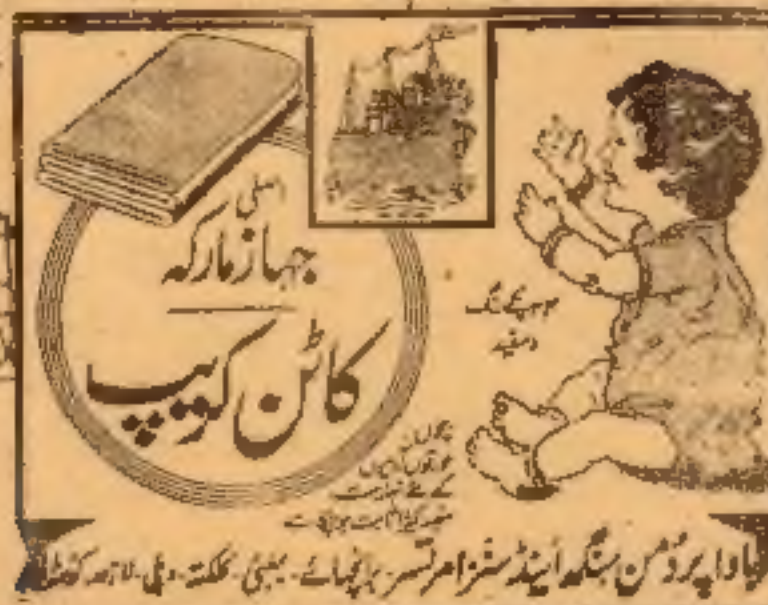 اصلی
جہاز مارکہ
کاٹن کریپ
رنگ
و سفید
بچوں
عورتوں
کے لئے نہایت
مفید کپڑا ثابت ہوا ہے
باوا پردُمن سنگھ اینڈ سنز امرتسر۔ برانچہائے۔ بمبئی۔ کلکتہ۔ دہلی۔ لاہور